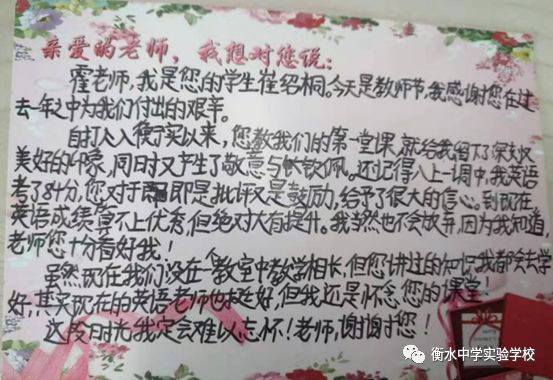 亲爱的老师，我想对您说：
霍老师，我是您的学生崔绍桐。今天是教师节，我感谢您在过
去一年之中为我们付出的艰辛。
自打入入衡实以来，您教我们的第一堂课，就给我留下了深刻又
美好的印象，同时又产生了敬意与钦佩。还记得八上一调中，我英语
考了84分，您对于我即是批评又是鼓励，给予了很大的信心。到现在
英语成绩算不上优秀，但绝对大有提升。我当然也不会放弃，因为我知道，
老师您十分看好我！
虽然现在我们没在一个教室中教学相长，但您讲过的知识我都会去学
好，其实现在的英语老师也挺好，但我还是怀念您的课堂！
这段时光我定会难以忘怀！老师，谢谢您！
衡水中学实验学校